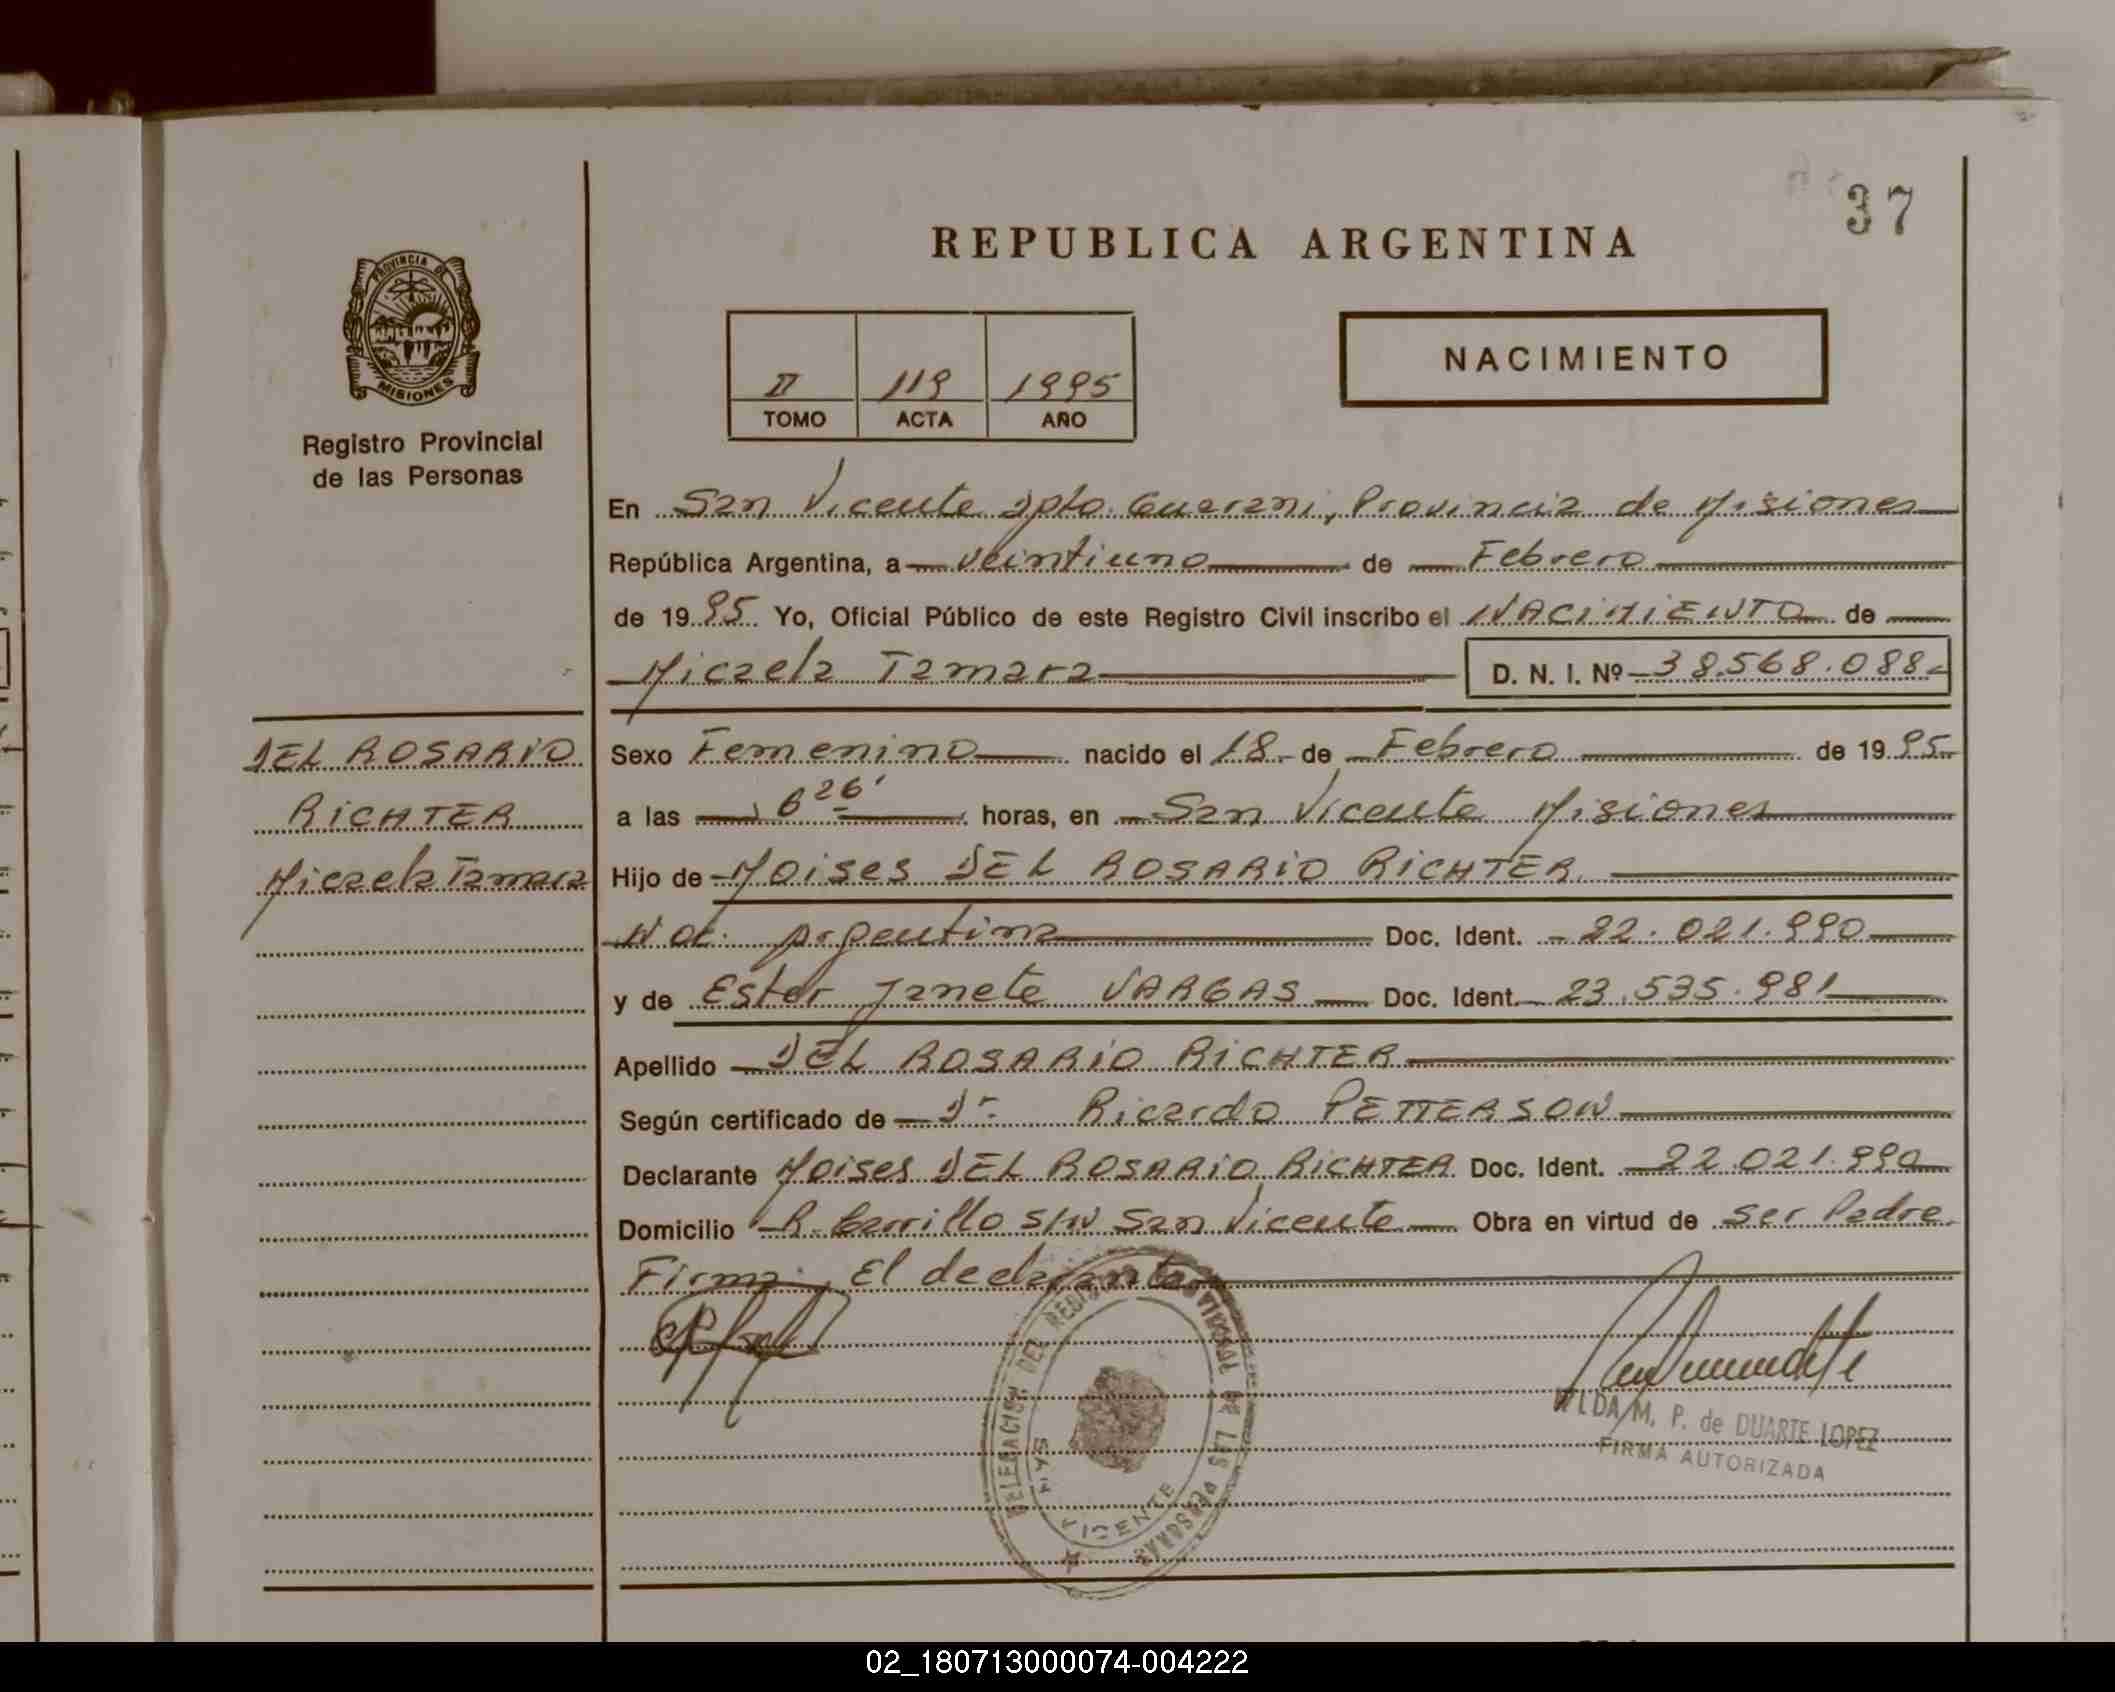 37
REPUBLICA ARGENTINA
PROVINCIA DE
MISIONES
Registro Provincial
de las Personas
II 119 1995
TOMO ACTA AÑO
NACIMIENTO
En San Vicente Dpto. Guarani, Provincia de Misiones
República Argentina, a veintiuno de Febrero
de 1995 Yo, Oficial Público de este Registro Civil inscribo el NACIMIENTO de
Micaela Tamara D. N. I. Nº 38.568.088
DEL ROSARIO
RICHTER
Micaela Tamara
Sexo Femenino nacido el 18 de Febrero de 1995
a las 6 26' horas, en San Vicente Misiones
Hijo de Moises DEL ROSARIO RICHTER
Nac. Argentina Doc. Ident. 22.021.990
y de Ester Janete VARGAS Doc. Ident. 23.535.981
Apellido DEL ROSARIO RICHTER
Según certificado de Dr. Ricardo PETTERSON
Declarante Moises DEL ROSARIO RICHTER Doc. Ident. 22.021.990
Domicilio R. Carrillo S/N San Vicente Obra en virtud de ser Padre
Firma: El declarante
DELEGACION DEL REGISTRO PROVINCIAL DE LAS PERSONAS
SAN VICENTE
M. P. de DUARTE LOPEZ
FIRMA AUTORIZADA
02_180713000074-004222